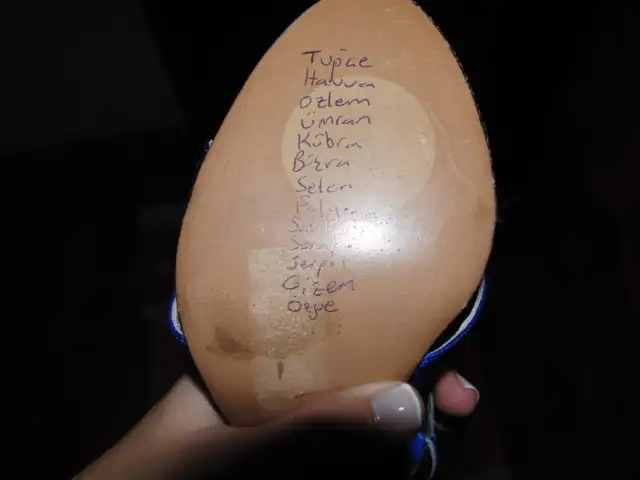 Tuğçe
Havva
Özlem
Ümran
Kübra
Büşra
Selen
Serpil
Gizem
Özge